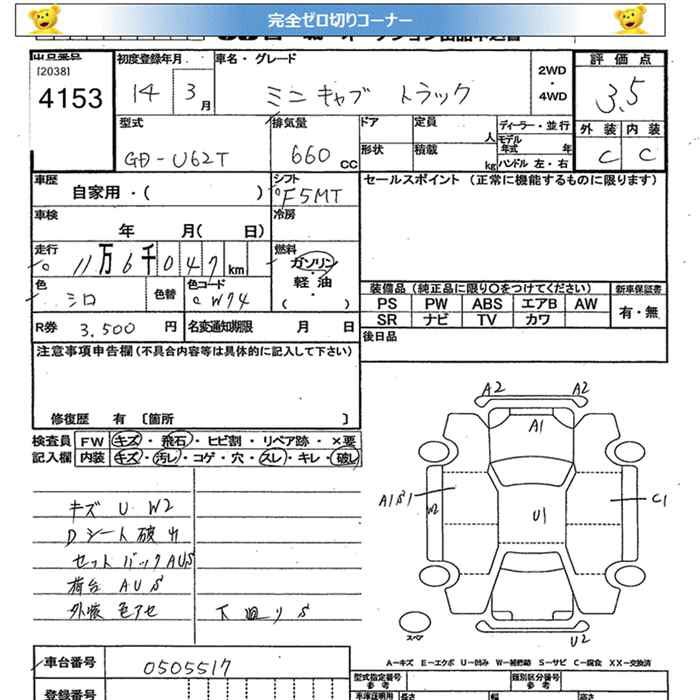 完全ゼロ切りコーナー
[2038]
4153
初度登録年月
14 3月
車名・グレード
ミニキャブ トラック
2WD
・
4WD
評価点
3.5
外装 内装
C C
型式
GD-U62T
排気量
660cc
ドア
定員
人
ディーラー・並行
モデル年式 年
形状
積載
kg
ハンドル 左・右
車歴
自家用・( )
シフト
F5MT
セールスポイント (正常に機能するものに限ります)
車検
年 月( 日)
冷房
走行
11万6千047km
燃料
ガソリン・
軽油・
( )
色
シロ
色替
色コード
W74
装備品 (純正品に限り○をつけてください)
新車保証書
PS PW ABS エアB AW
SR ナビ TV カワ
有・無
R券
3.500円
名変通知期限 月 日
後日品
注意事項申告欄(不具合内容等は具体的に記入して下さい)
修復歴 有 〔箇所 〕
検査員
記入欄
FW キズ・飛石・ヒビ割・リペア跡・×要
内装 キズ・汚レ・コゲ・穴・スレ・キレ・破レ
キズ U W2
Dシート破れ
セットバックAUS
荷台 AUS
外装 色アセ
下廻りS
A2
A2
A1
A1S1
W2
U1
C1
スペア
U2
A-キズ E-エクボ U-凹み W-補修跡 S-サビ C-腐食 XX-交換済
車台番号
0505517
型式指定番号
参考
類別区分番号
参考
登録番号
長さ
幅
高さ